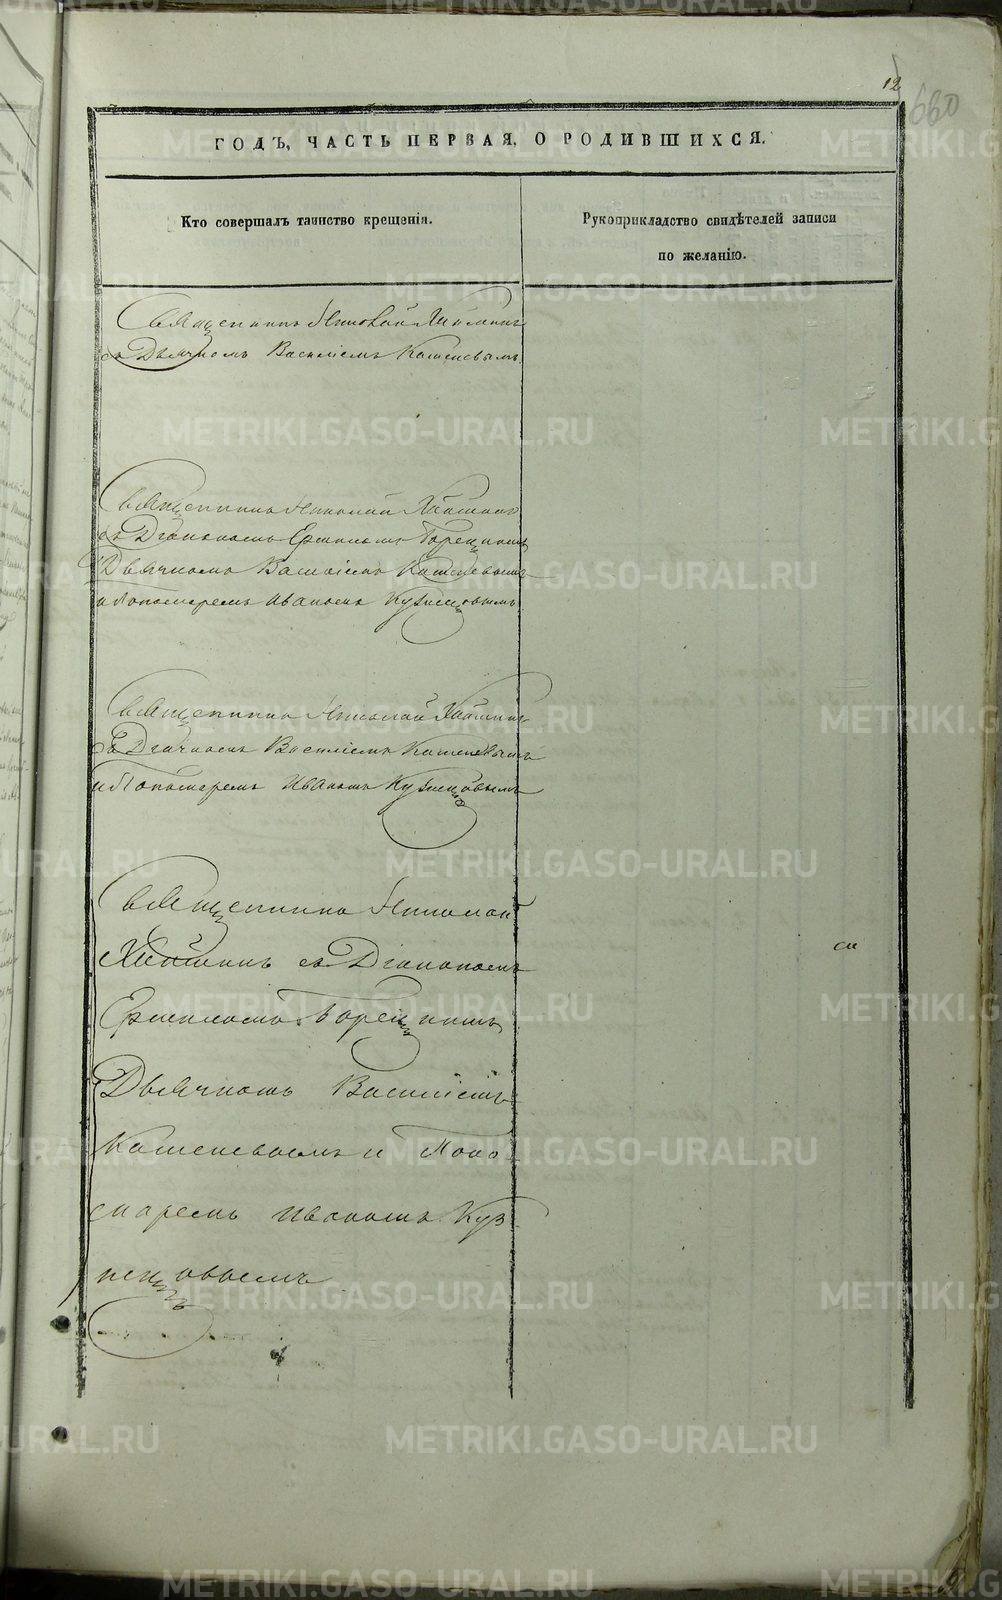 12
660
ГОДЪ, ЧАСТЬ ПЕРВАЯ, О РОДИВШИХСЯ.
Кто совершалъ таинство крещенія.
Рукоприкладство свидѣтелей записи
по желанію.
Священникъ Николай
съ Дьячкомъ Василіемъ Кашеевымъ
Священникъ Николай
съ Діакономъ Ермиломъ
Дьячкомъ Василіемъ
и Пономаремъ Иваномъ Кузнецовымъ
Священникъ Николай
съ Дьячкомъ Василіемъ
и Пономаремъ Иваномъ Кузнецовымъ
Священникъ Николай
съ Діакономъ
Ермиломъ
Дьячкомъ Василіемъ
и Поно
маремъ Иваномъ Куз
нецовымъ
METRIKI.GASO-URAL.RU